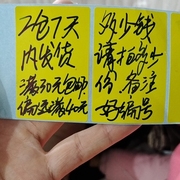 2包7天
内发货
满30元包邮
偏远满40元
多少钱
请拍多少
份,备注
好编号